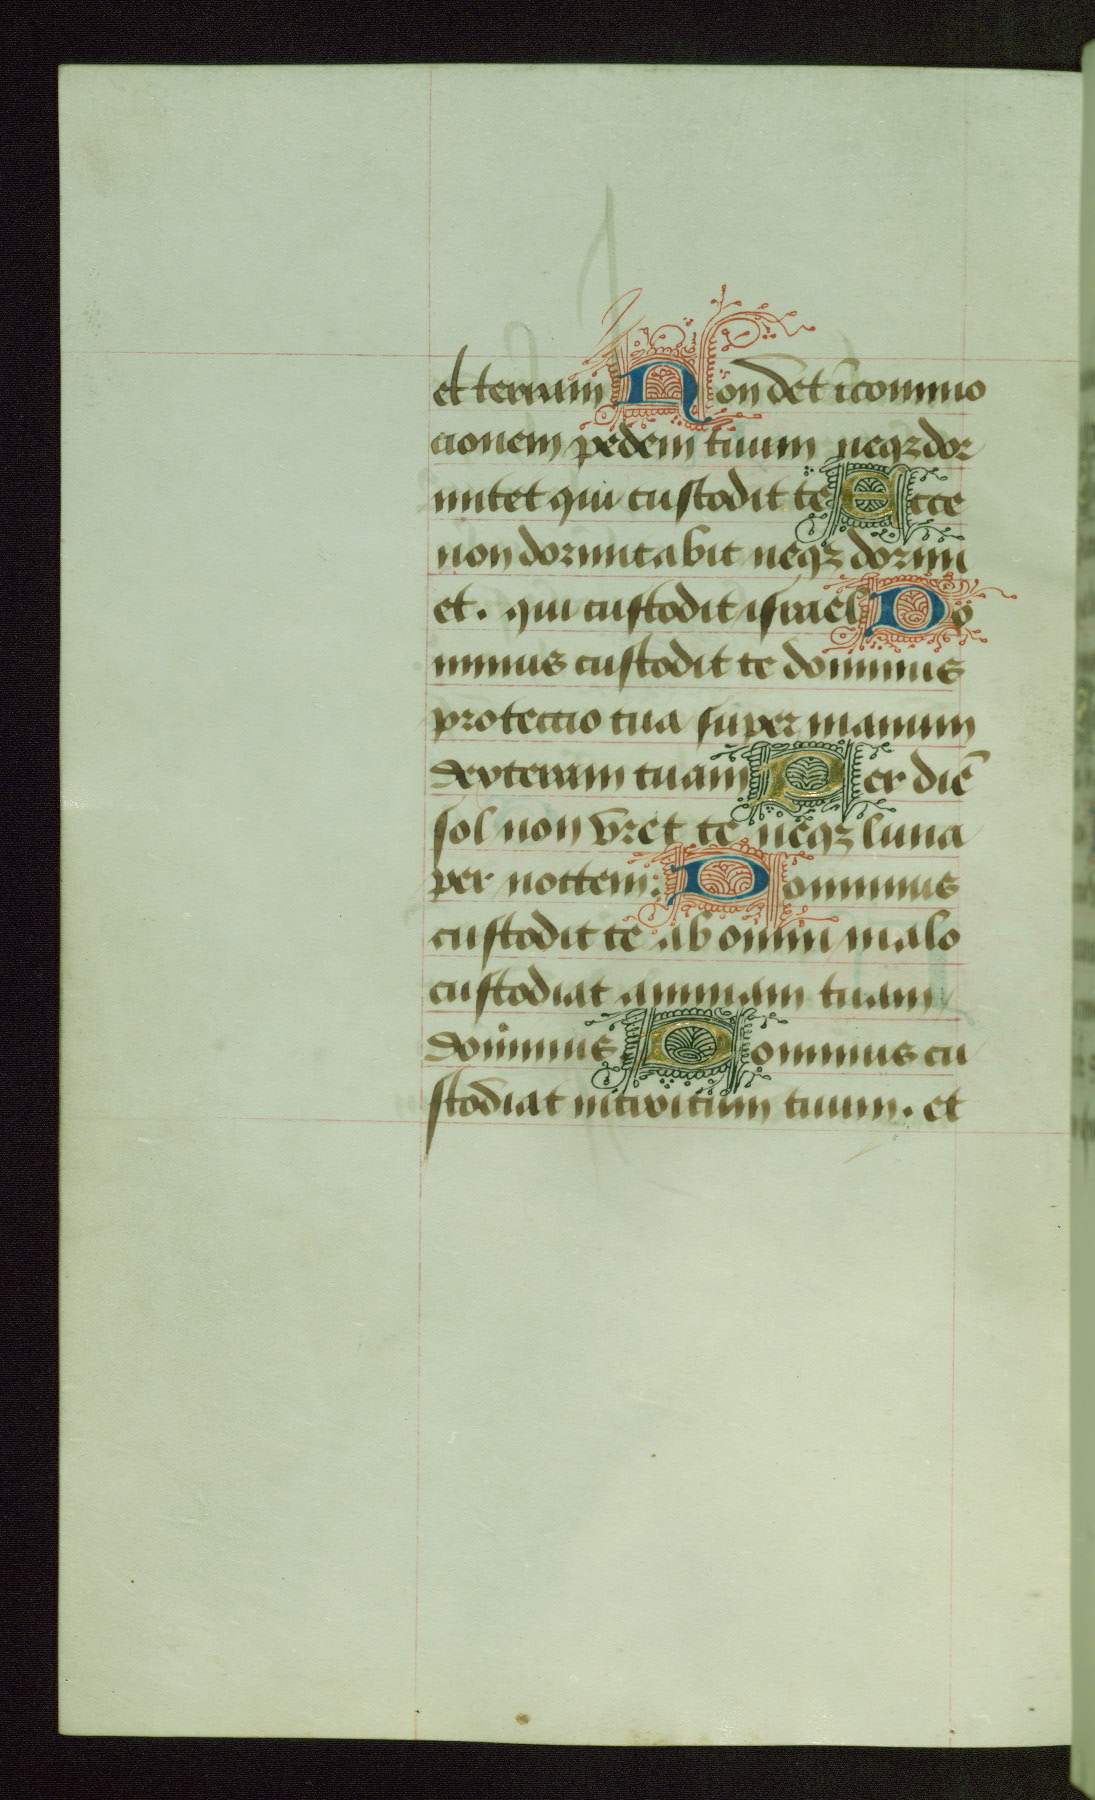 et terram Non det̄ īcommo
cionem pedem tuum neqꝫ dor
mitet qui custodit te Ecce
non dormitabit neqꝫ dormi
et. qui custodit israel Do
minus custodit te dominus
protectio tua super manum
dexteram tuam Per diē
sol non vret te neqꝫ luna
per noctem: Dominus
custodit te ab omni malo
custodiat animam tuam
dominus Dominus cu
stodiat introitum tuum. et